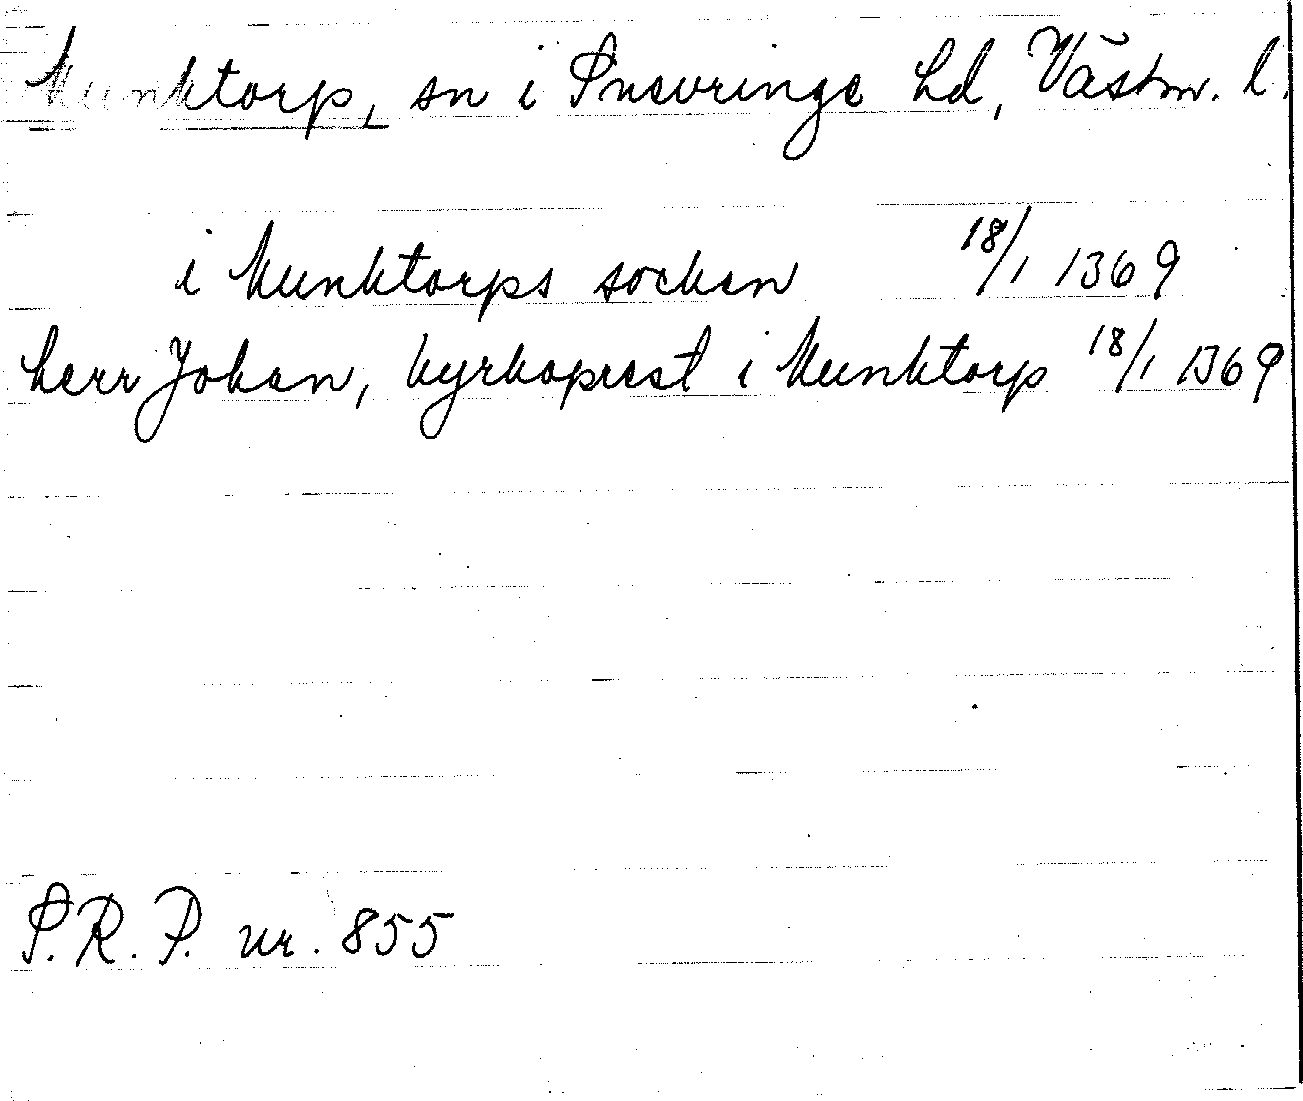 Munktorp, sn i Snevringe hd, Västm. l.
i Munktorps socken 18/1 1369
herr Johan, kyrkoprest i Munktorp 18/1 1369
S.R.P. nr. 855